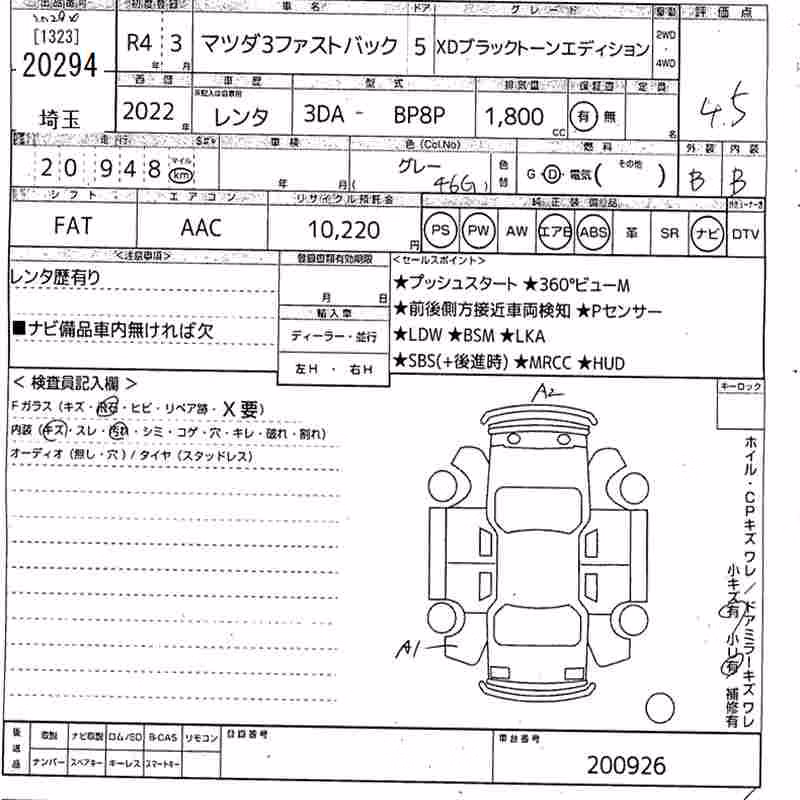 出品番号 初度登録 車名 ドア グレード 駆動 評価点
[1323]
20294
埼玉
R4 3 マツダ3ファストバック 5 XDブラックトーンエディション 2WD・4WD
年 月
西暦 車歴 型式 排気量 保証書 定員
※記入は自家用
2022年 レンタ 3DA - BP8P 1,800 CC 有 無 名
4.5
走行 車検 色 (Col.No) 燃料 外装 内装
20948 マイル km 年 月 グレー (46G) 色替 G・D・電気 (その他) B B
シフト エアコン リサイクル預託金 純正装備品
FAT AAC 10,220円 PS PW AW エアB ABS 革 SR ナビ DTV
<注意事項> 登録書類有効期限 <セールスポイント>
レンタ歴有り
■ナビ備品車内無ければ欠
月 日
輸入車
ディーラー・並行
左H ・ 右H
★プッシュスタート ★360°ビューM
★前後側方接近車両検知 ★Pセンサー
★LDW ★BSM ★LKA
★SBS(+後進時) ★MRCC ★HUD
< 検査員記入欄 >
Fガラス (キズ・飛石・ヒビ・リペア跡・X要)
内装 (キズ・スレ・汚れ・シミ・コゲ・穴・キレ・破れ・割れ)
オーディオ (無し・穴) / タイヤ (スタッドレス)
キーロック
A2
A1
ホイル・CPキズ ワレ / ドアミラーキズ ワレ
小キズ有 小凹有 補修有
後送品 取説 ナビ取説 ロム/SD B-CAS リモコン 登録番号 車台番号
ナンバー スペアキー キーレス スマートキー
200926